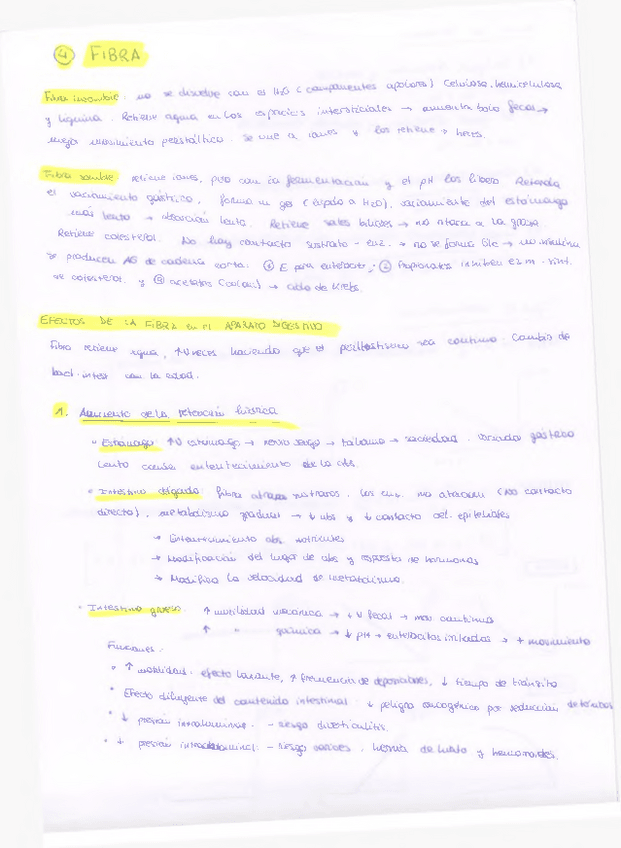 ④ FIBRA
Fibra insoluble: no se disuelve con el H2O (componentes apolares) Celulosa, hemicelulosa
y lignina. Retiene agua en los espacios intersticiales → aumenta bolo fecal →
mejor movimiento peristáltico. Se une a iones y los retiene → heces.
Fibra soluble retiene iones, pero con la fermentación y el pH los libera. Retarda
el vaciamiento gástrico, forma un gel (líquido a H2O), vaciamiento del estómago
más lento → absorción lenta. Retiene sales biliares → no ataca a la grasa
Retiene colesterol. No hay contacto sustrato - enz. → no se forma Glc → insulina
Se producen AG de cadena corta: ① E para enterocito; ② Propionatos inhiben enzm. sint.
de colesterol y ③ acetatos → ciclo de Krebs.
EFECTOS DE LA FIBRA en el APARATO DIGESTIVO
Fibra retiene agua, ↑V heces haciendo que el peristaltismo sea continuo. Cambio de
bact. intest con la edad.
1. Aumento de la retención hídrica
" Estómago: ↑V estomago → nervio vago → tálamo → saciedad. Vaciado gástrico
lento causa enlentecimiento de la abs.
• Intestino delgado: fibra atrapa nutrientes, las enz. no atacan (no contacto
directo), metabolismo gradual → ↓ abs y ↓ contacto cel. epiteliales
→ Enlentecimiento abs. nutrientes
→ Modificación del lugar de abs y respuesta de hormonas
→ Modifica la velocidad de metabolismo.
• Intestino grueso: ↑ motilidad mecánica → ↓V fecal → mov continuos
↑ " química → ↓ pH → enterocitos irritados → + movimiento
Funciones:
• ↑ motilidad: efecto laxante, ↑ frecuencia de deposiciones, ↓ tiempo de tránsito
• Efecto diluyente del contenido intestinal: ↓ peligro cancerígeno por reducción de
• ↓ presión intraluminal: - riesgo diverticulitis.
• ↓ presión intraabdominal: - riesgo varices, hernia de hiato y hemorroides.